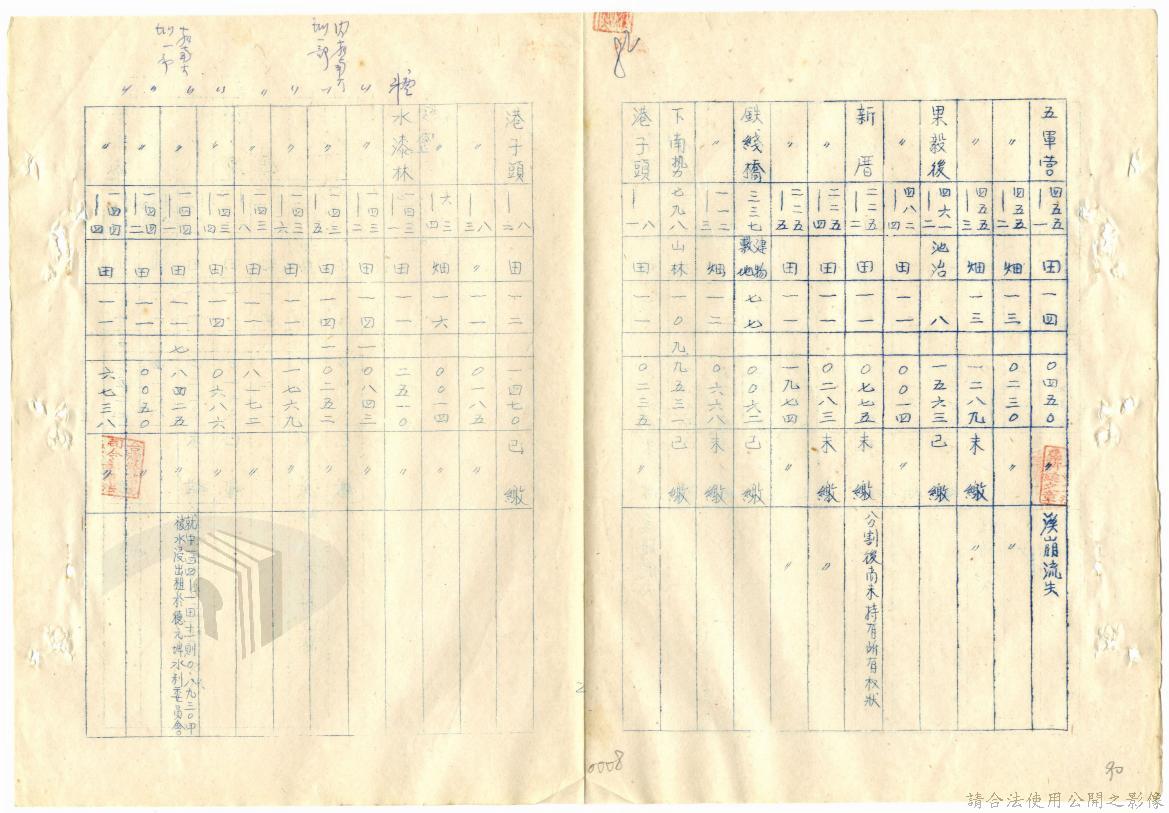 五軍营 一四五五—一 田 一四 〇四五〇 〃 溪崩流失
〃 一四五五—二 畑 一三 〇二三〇 〃 〃
〃 一四五五—三 畑 一三 一二八九 未繳 〃
果毅後 一四六一—二 池沼 八 一五六三 已繳
〃 一四八二—四 田 一一 〇〇一四
新厝 二二五—二 田 一一 〇七七五 未繳 分割後尚未持有所有权狀
〃 二二五—四 田 一一 〇二八三 未繳 〃
〃 二二五—五 田 一一 一九七四 〃 〃
鉄綫橋 三三七 建物敷地 七七 〇〇六二 已繳
〃 一一二—三 畑 一二 〇六六八 未繳
下南勢 七九八 山林 一〇 九 九五三一 已繳
港子頭 一八—一 田 一一 〇二三五 〃
港子頭 一八—二 田 一二 一四七〇 已繳
〃 一八—三 〃 一一 〇一八五 〃
〃 六三—四 畑 一六 〇〇一四 〃
水漆林 一四三—一 田 一一 二五一〇 〃
〃 一四三—二 田 一四 一 〇八四三 〃
〃 一四三—五 田 一四 一 〇二五二 〃
〃 一四三—六 田 一一 一七六九 〃
〃 一四三—八 田 一一 八一七二 〃
〃 一四三—四 田 一四 〇六八六 〃
〃 一四四—一 田 一一 七 八四二五 〃
就中一四四—一田十一則〇.八九三〇甲
被水浸出租於德元埤水利委員會
〃 一四四—二 田 一一 〇〇五〇 〃
〃 一四四—四 田 一一 六七三八 〃
0008
90
請合法使用公開之影像